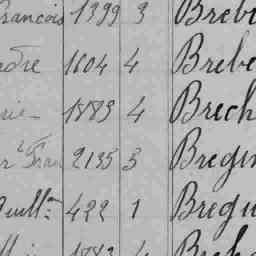 rancois 1399 3 Breb
dre 1604 4 Brebe
rie 1883 4 Brech
r Fran 2135 3 Bregen
Guill 422 1 Bregu
1883 4